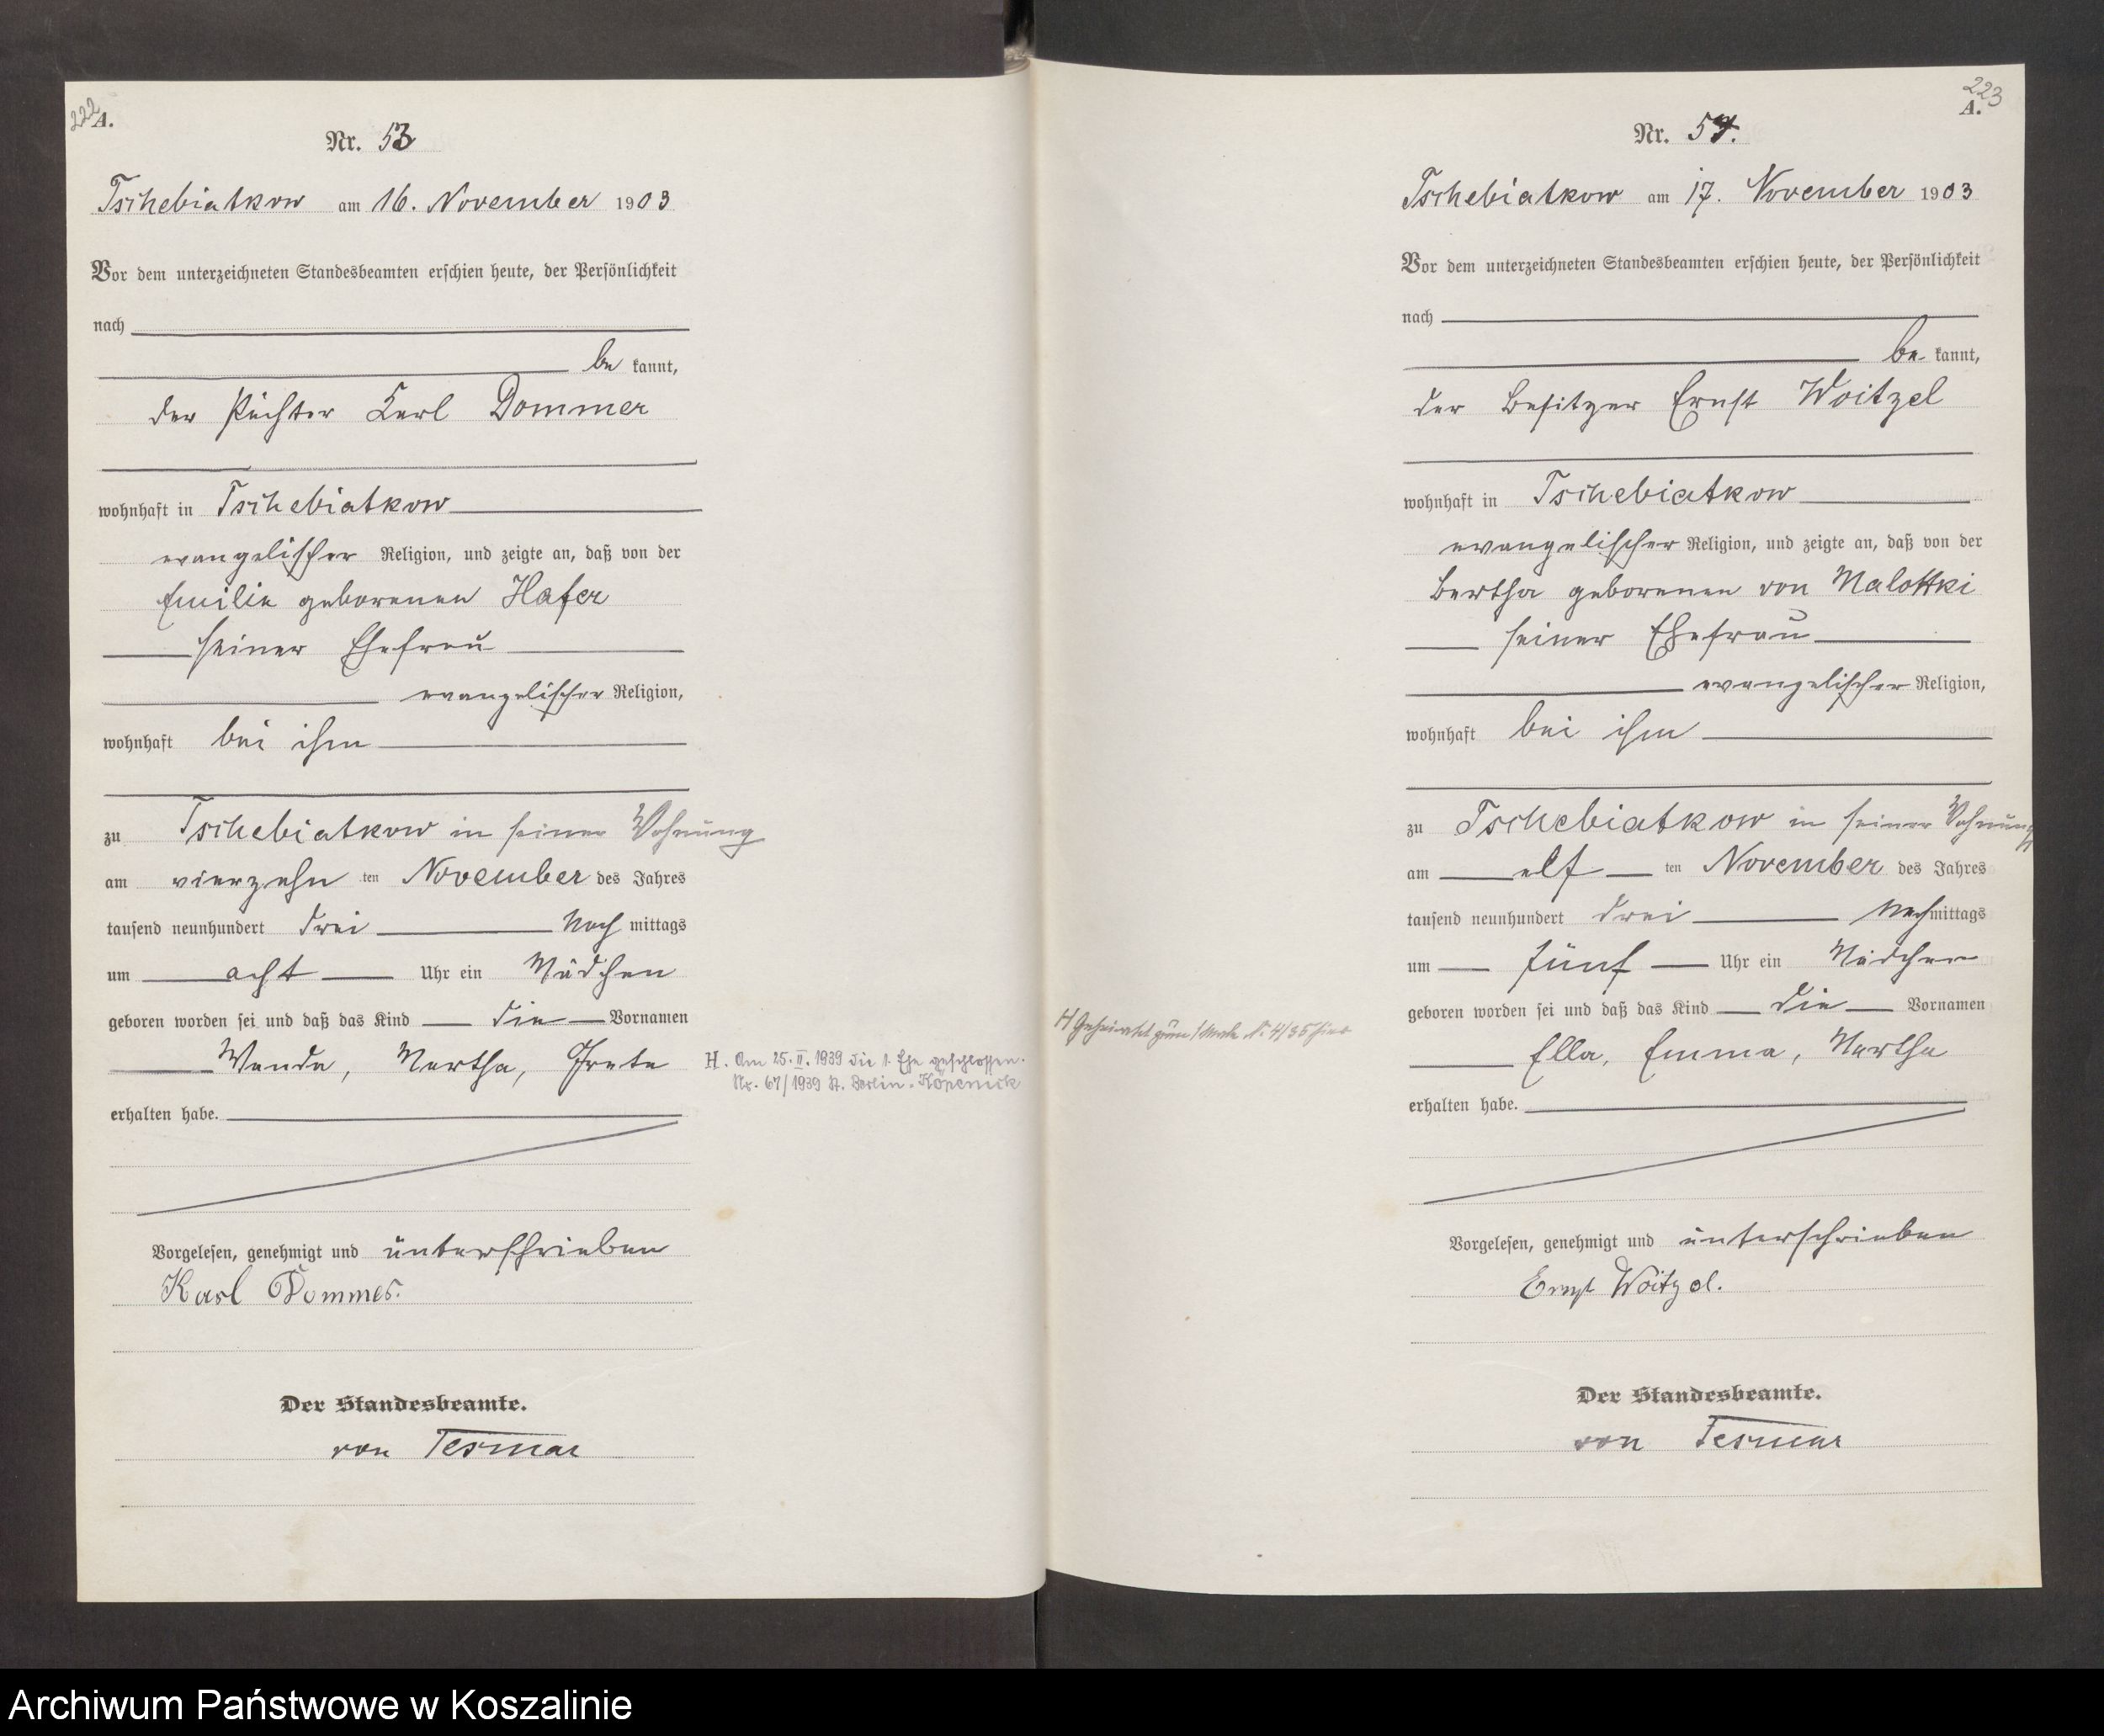 222
A.
Nr. 53
Tschebiatkow am 16. November 1903
Vor dem unterzeichneten Standesbeamten erschien heute, der Persönlichkeit
nach
be kannt,
der Pächter Karl Dommer
wohnhaft in Tschebiatkow
evangelischer Religion, und zeigte an, daß von der
Emilie geborenen Hafer
seiner Ehefrau
evangelischer Religion,
wohnhaft bei ihm
zu Tschebiatkow in seiner Wohnung
am vierzehn ten November des Jahres
tausend neunhundert drei Nach mittags
um acht Uhr ein Mädchen
geboren worden sei und daß das Kind die Vornamen
Wanda, Martha, Grete
H. Am 25. II. 1939 die 1. Ehe geschlossen.
Nr. 67/1939 St. Berlin-Köpenick
erhalten habe.
Vorgelesen, genehmigt und unterschrieben
Karl Dommer.
Der Standesbeamte.
von Tesmar
223
A.
Nr. 54.
Tschebiatkow am 17. November 1903
Vor dem unterzeichneten Standesbeamten erschien heute, der Persönlichkeit
nach
be kannt,
der Besitzer Ernst Woitzel
wohnhaft in Tschebiatkow
evangelischer Religion, und zeigte an, daß von der
Bertha geborenen von Malottki
seiner Ehefrau
evangelischer Religion,
wohnhaft bei ihm
zu Tschebiatkow in seiner Wohnung
am elf ten November des Jahres
tausend neunhundert drei Nachmittags
um fünf Uhr ein Mädchen
geboren worden sei und daß das Kind die Vornamen
H Geheiratet 4/35
Ella, Emma, Martha
erhalten habe.
Vorgelesen, genehmigt und unterschrieben
Ernst Woitzel.
Der Standesbeamte.
von Tesmar
Archiwum Państwowe w Koszalinie